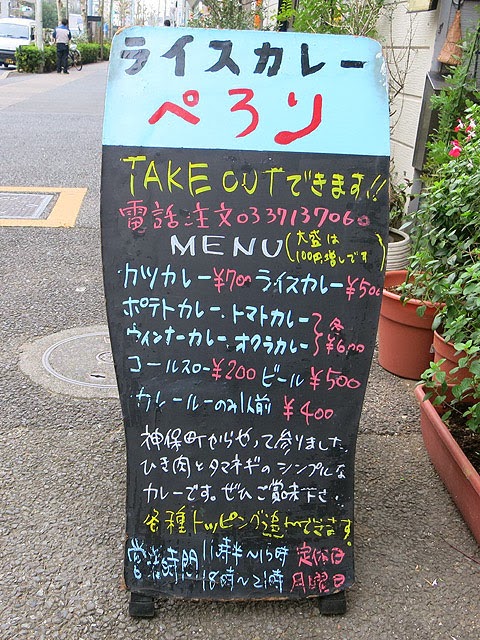 ライスカレー
ぺろり
TAKE OUTできます!!
電話注文0337137060
MENU(大盛は
100円増しです)
カツカレー¥700 ライスカレー¥500
ポテトカレー、トマトカレー
ウィンナーカレー、オクラカレー}各¥600
コールスロー¥200 ビール¥500
カレールーのみ1人前 ¥400
神保町からやって参りました。
ひき肉とタマネギのシンプルな
カレーです。ぜひご賞味下さい。
各種トッピング追加できます
営業時間 11時半〜15時 定休日
18時〜21時 月曜日